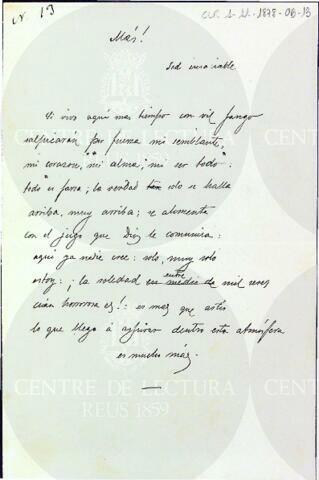 nº 13
CLP. 1-11-1878-08-13
Más!
Sed insaciable
Si vivo aquí mas tiempo con vil fango
salpicarán por fuerza mi semblante,
mi corazon, mi alma, mi ser todo:
todo es farsa; la verdad tan solo se halla
arriba, muy arriba; se alimenta
con el jugo que Dios le comunica:
aqui ya nadie cree: solo, muy solo
estoy: ¡la soledad en medio de entre mil seres
cuan horrorosa es!: es mas que
lo que llego á aspirar dentro esta atmósfera
es mucho más.
CENTRE DE LECTURA
REUS 1859